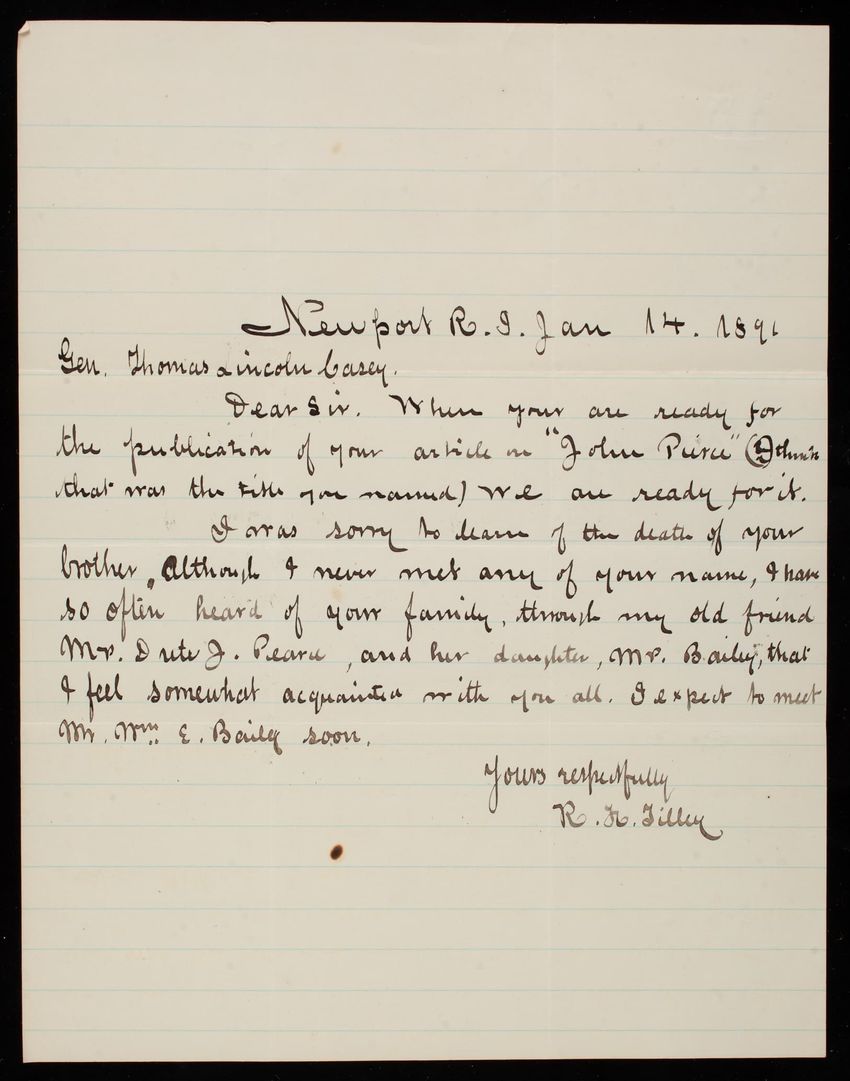 Newport R. I. Jan 14. 1891
Gen. Thomas Lincoln Casey.
Dear Sir. When your are ready for
the publication of your article on "John Pierce" (I think
that was the title you named) We are ready for it.
I was sorry to learn of the death of your
brother, Although I never met any of your name, I have
so often heard of your family, through my old friend
Mrs. Dutee J. Pearce, and her daughter, Mrs. Bailey, that
I feel somewhat acquainted with you all. I expect to meet
Mr. Wm. E. Baily soon.
Yours respectfully
R. H. Tilley